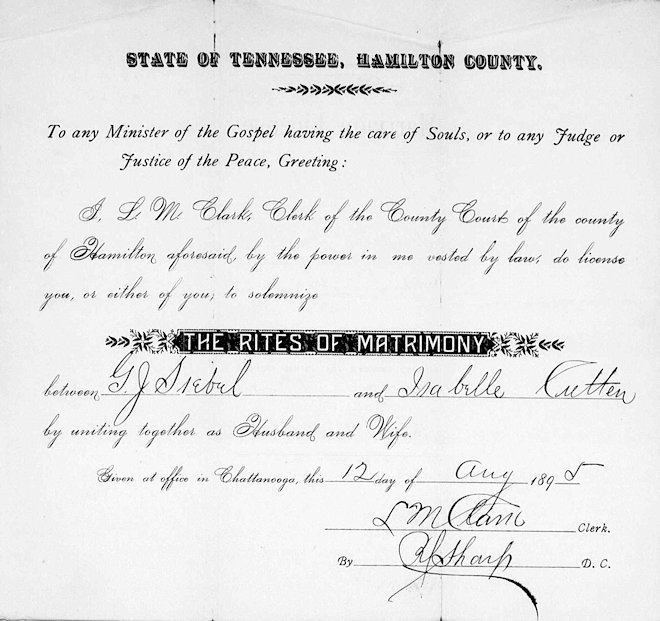 STATE OF TENNESSEE, HAMILTON COUNTY.
To any Minister of the Gospel having the care of Souls, or to any Judge or
Justice of the Peace, Greeting:
I, L. M. Clark, Clerk of the County Court of the county
of Hamilton aforesaid, by the power in me vested by law, do license
you, or either of you, to solemnize
THE RITES OF MATRIMONY
between G. J. Siebel and Isabelle Cutten
by uniting together as Husband and Wife.
Given at office in Chattanooga, this 12 day of Aug 1895
L M Clark Clerk.
By Sharp D. C.